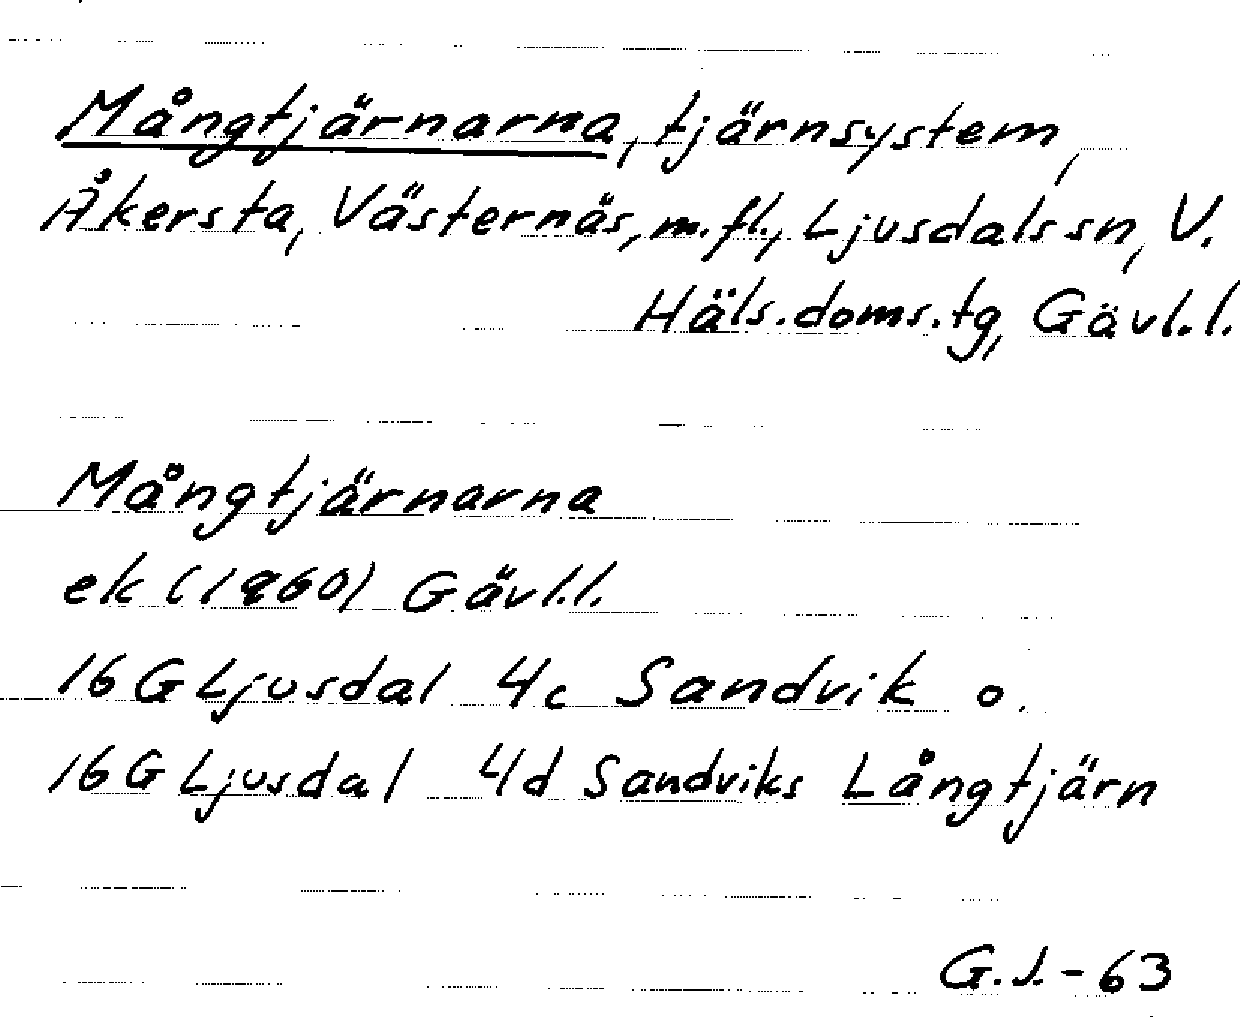 Mångtjärnarna, tjärnsystem,
Åkersta, Västernäs, m.fl., Ljusdals sn, V.
Häls.doms.tg, Gävl.l.
Mångtjärnarna
ek (1960) Gävl.l.
16 G Ljusdal 4c Sandvik o.
16 G Ljusdal 4d Sandviks Långtjärn
G.J.-63